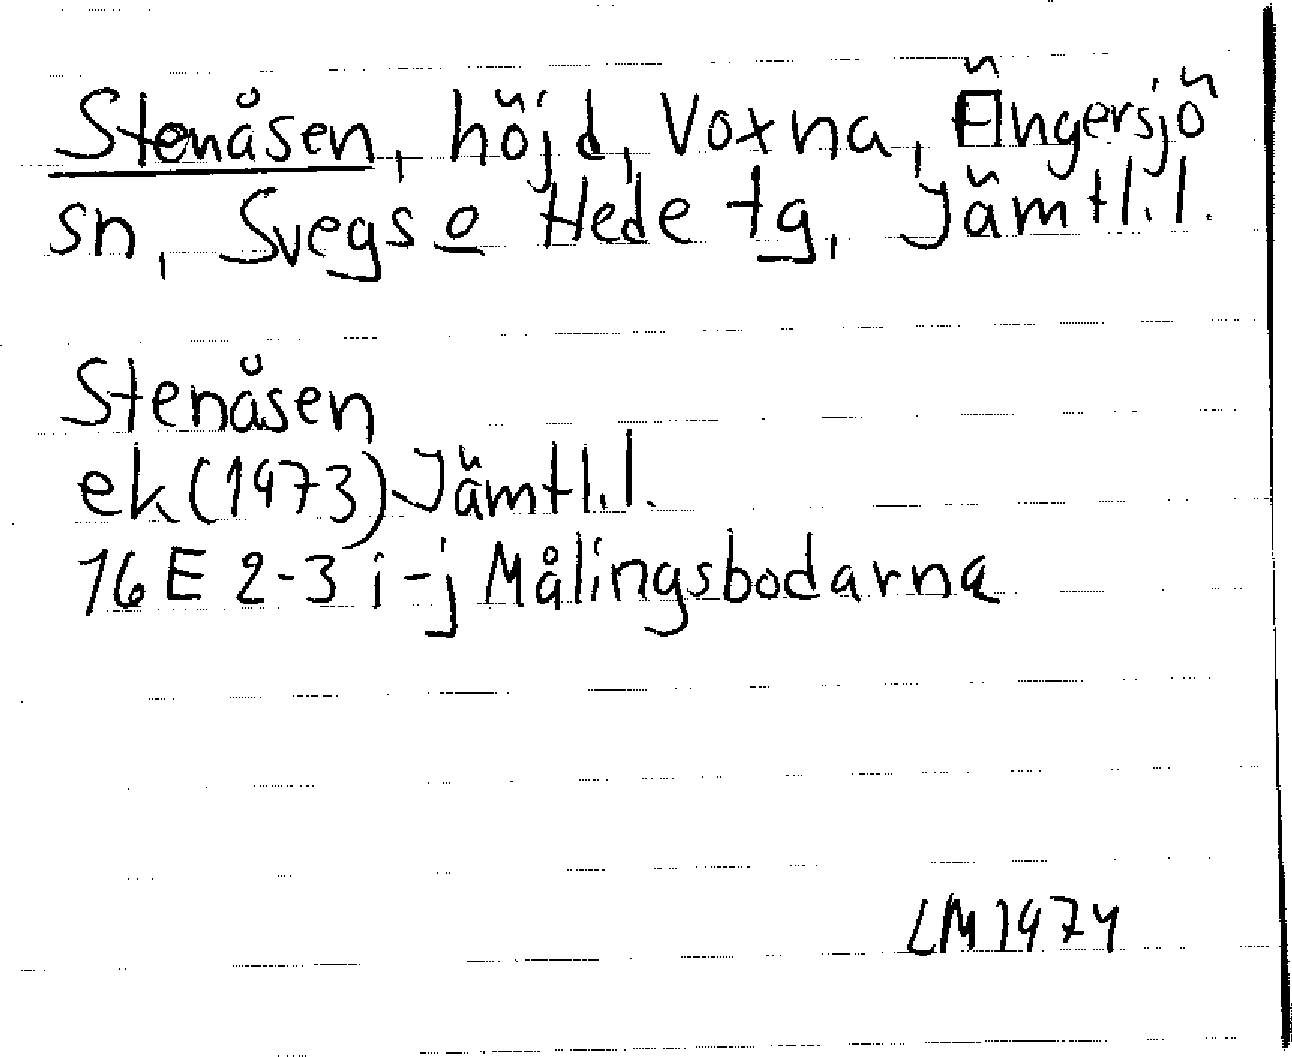 Stenåsen, höjd, Voxna, Ängersjö
sn, Svegs o Hede tg, Jämtl.l.
Stenåsen
ek (1973) Jämtl.l.
16 E 2-3 i-j Målingsbodarna
LM 1974